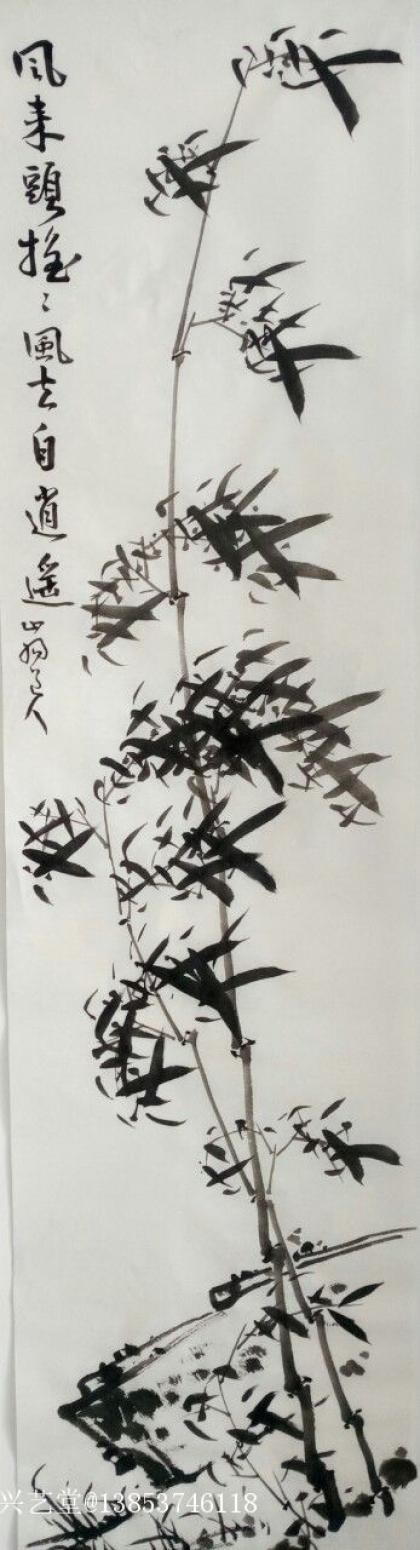 风来頭搖〻風去自逍遥山翁道人
兴艺堂@13853746118